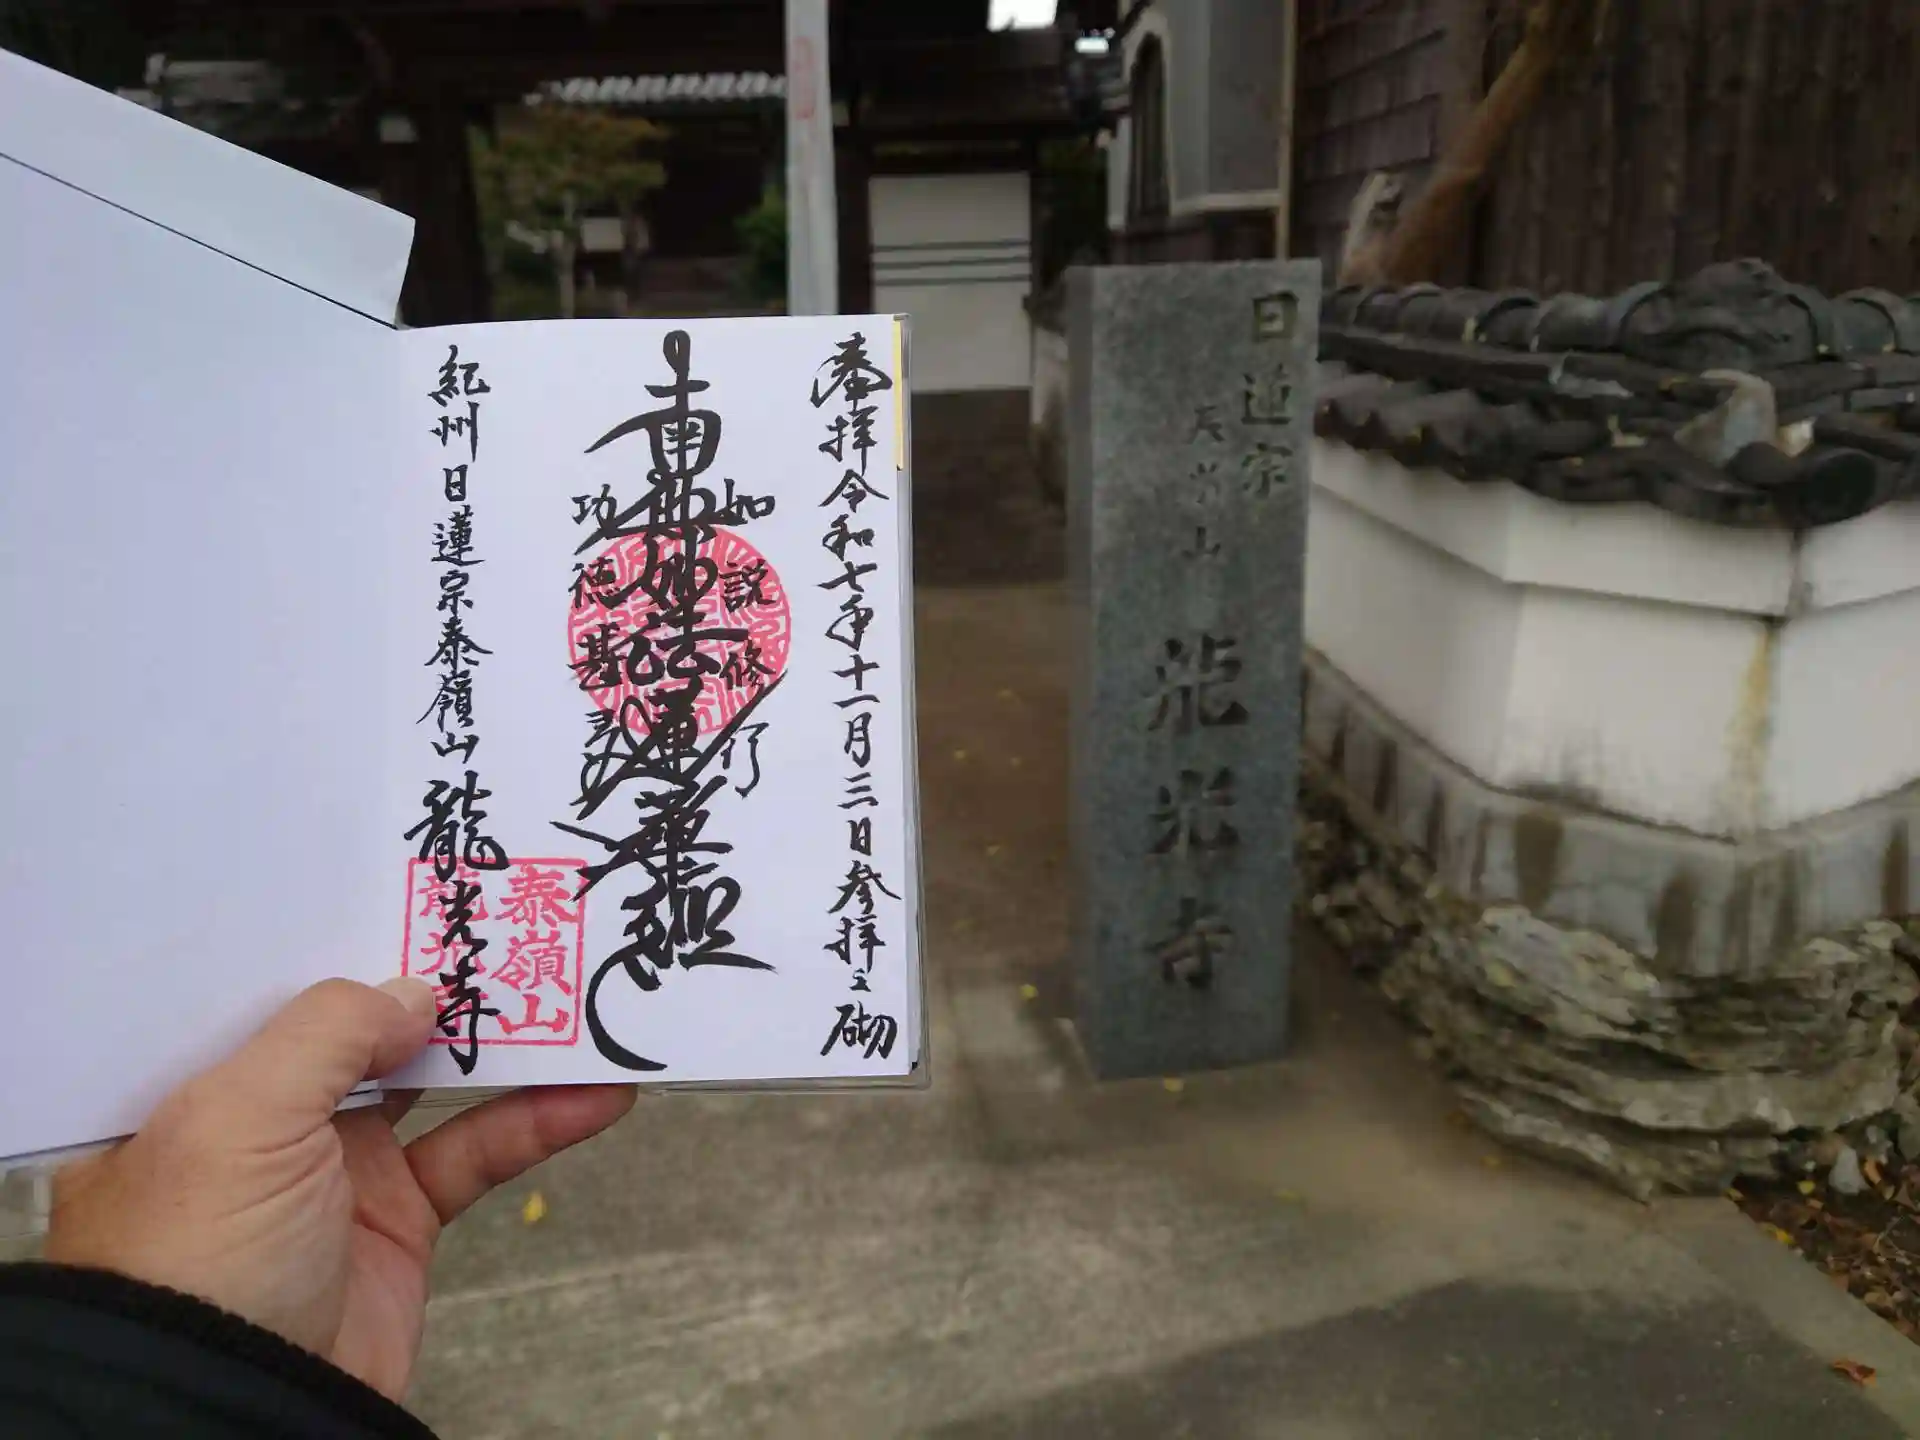 奉拝令和七年十一月三日参拝之砌
如説修行
南無妙法蓮華経
功徳甚
紀州日蓮宗泰嶺山龍光寺
泰嶺山
龍光寺
日蓮宗
龍光寺